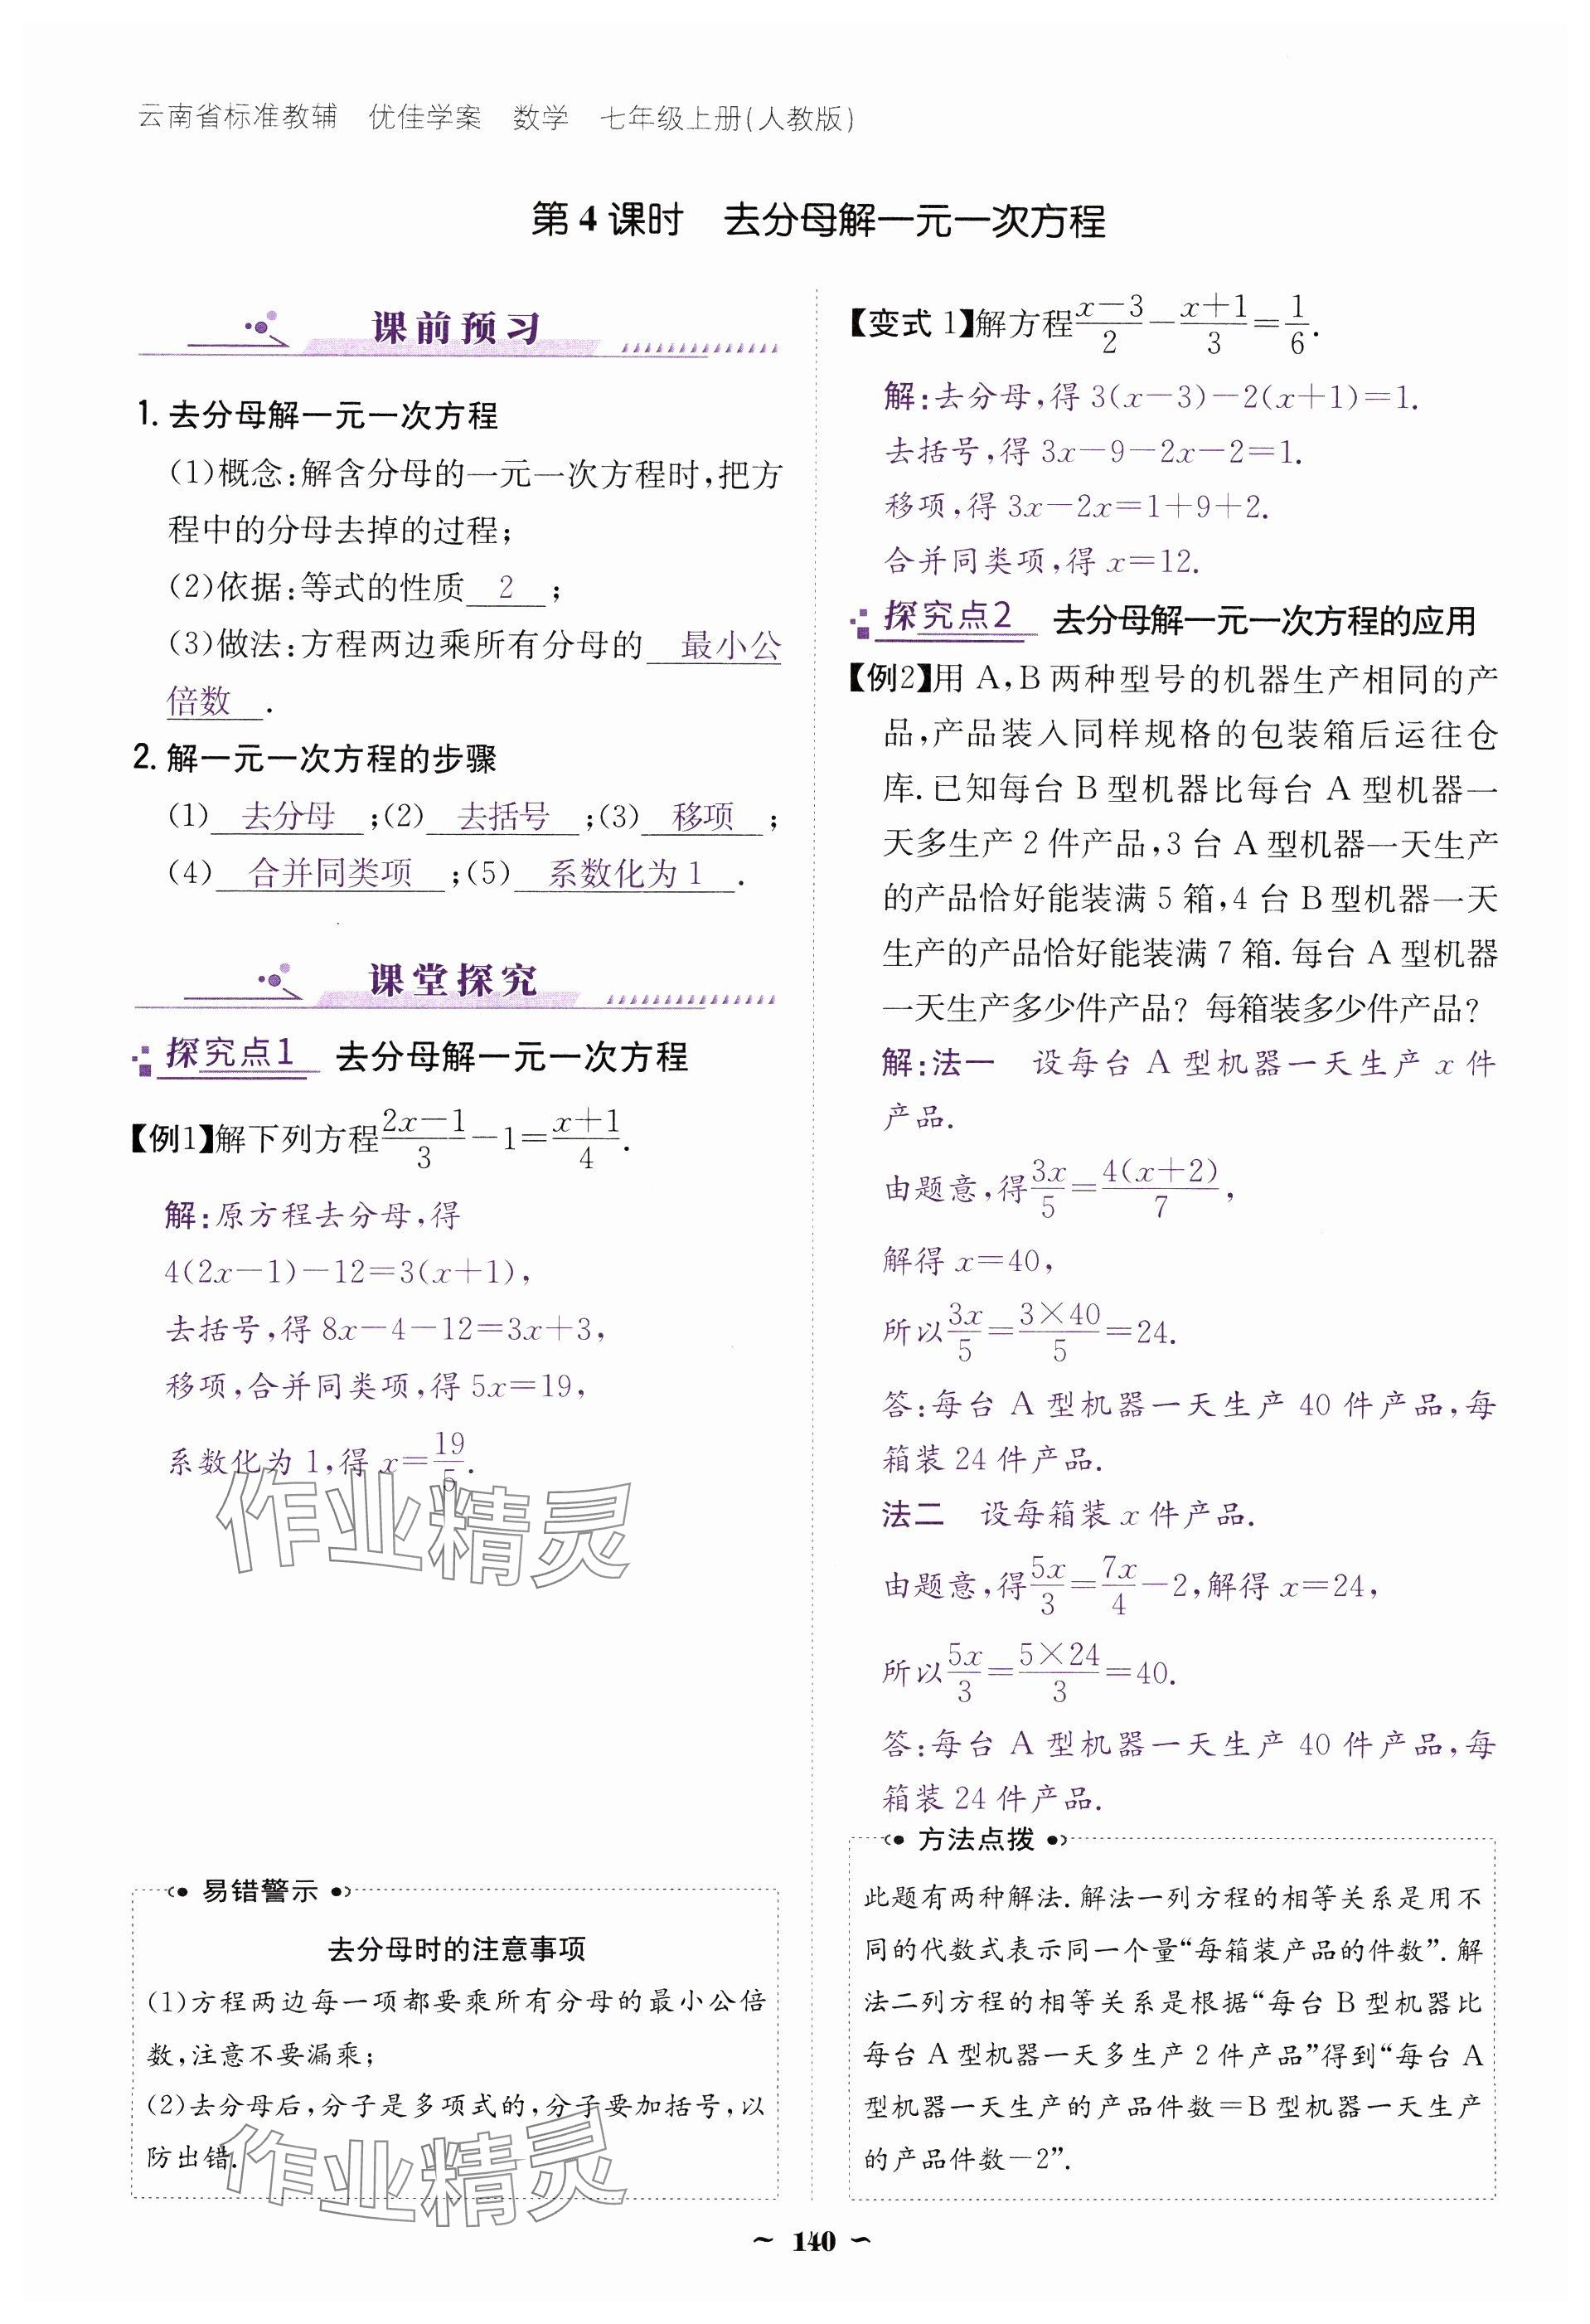 云南省标准教辅 优佳学案 数学 七年级上册(人教版)
第 4 课时 去分母解一元一次方程
课前预习
1. 去分母解一元一次方程
(1)概念:解含分母的一元一次方程时,把方
程中的分母去掉的过程;
(2)依据:等式的性质 2 ;
(3)做法:方程两边乘所有分母的 最小公
倍数 .
2. 解一元一次方程的步骤
(1) 去分母 ;(2) 去括号 ;(3) 移项 ;
(4) 合并同类项 ;(5) 系数化为 1 .
课堂探究
探究点1 去分母解一元一次方程
【例1】解下列方程(2x-1)/3-1=(x+1)/4.
解:原方程去分母,得
4(2x-1)-12=3(x+1),
去括号,得 8x-4-12=3x+3,
移项,合并同类项,得 5x=19,
系数化为 1,得 x=19/5.
作业精灵
易错警示
去分母时的注意事项
(1)方程两边每一项都要乘所有分母的最小公倍
数,注意不要漏乘;
(2)去分母后,分子是多项式的,分子要加括号,以
防出错.
作业精灵
【变式 1】解方程(x-3)/2-(x+1)/3=1/6.
解:去分母,得 3(x-3)-2(x+1)=1.
去括号,得 3x-9-2x-2=1.
移项,得 3x-2x=1+9+2.
合并同类项,得 x=12.
探究点2 去分母解一元一次方程的应用
【例2】用 A,B 两种型号的机器生产相同的产
品,产品装入同样规格的包装箱后运往仓
库. 已知每台 B 型机器比每台 A 型机器一
天多生产 2 件产品,3 台 A 型机器一天生产
的产品恰好能装满 5 箱,4 台 B 型机器一天
生产的产品恰好能装满 7 箱. 每台 A 型机器
一天生产多少件产品? 每箱装多少件产品?
解:法一 设每台 A 型机器一天生产 x 件
产品.
由题意,得3x/5=4(x+2)/7,
解得 x=40,
所以3x/5=(3×40)/5=24.
答:每台 A 型机器一天生产 40 件产品,每
箱装 24 件产品.
法二 设每箱装 x 件产品.
由题意,得5x/3=7x/4-2,解得 x=24,
所以5x/3=(5×24)/3=40.
答:每台 A 型机器一天生产 40 件产品,每
箱装 24 件产品.
方法点拨
此题有两种解法. 解法一列方程的相等关系是用不
同的代数式表示同一个量“每箱装产品的件数”. 解
法二列方程的相等关系是根据“每台 B 型机器比
每台 A 型机器一天多生产 2 件产品”得到“每台 A
型机器一天生产的产品件数=B 型机器一天生产
的产品件数-2”.
~ 140 ~